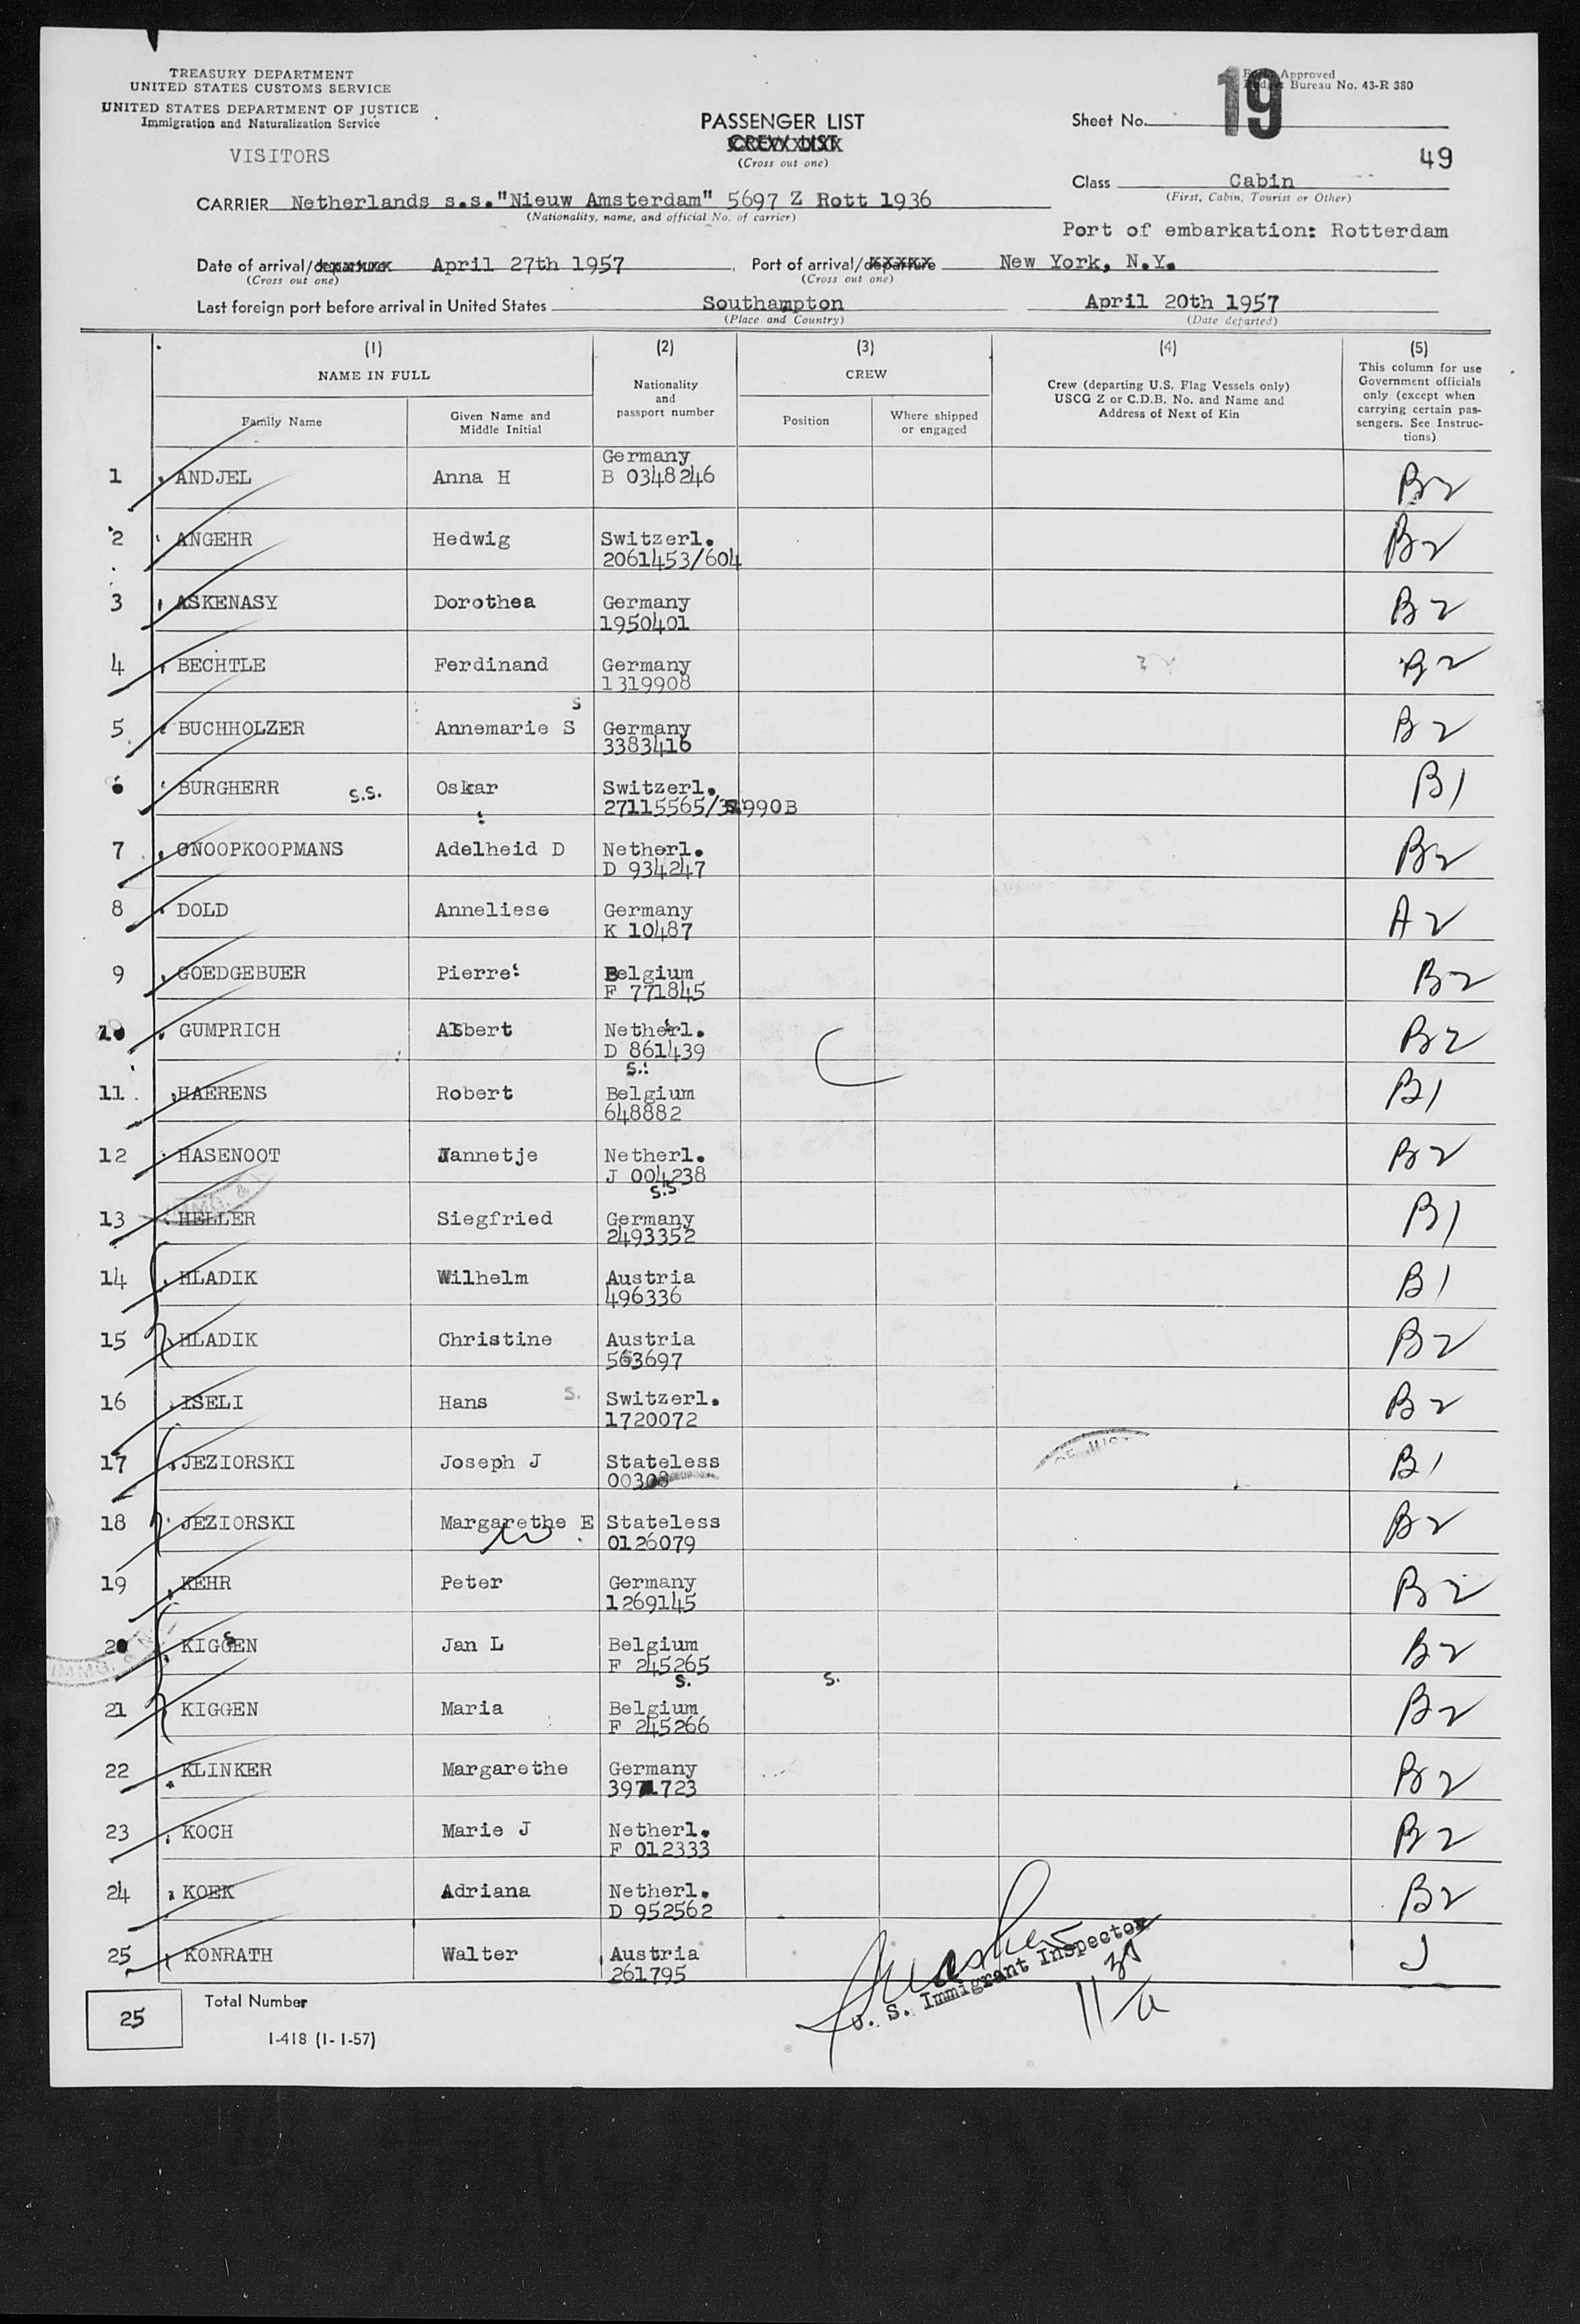 TREASURY DEPARTMENT
UNITED STATES CUSTOMS SERVICE
UNITED STATES DEPARTMENT OF JUSTICE
Immigration and Naturalization Service
VISITORS
PASSENGER LIST
CREW LIST
(Cross out one)
Approved
Bureau No. 43-R 380
Sheet No. 19
49
Class Cabin
(First, Cabin, Tourist or Other)
CARRIER Netherlands s.s."Nieuw Amsterdam" 5697 Z Rott 1936
(Nationality, name, and official No. of carrier)
Port of embarkation: Rotterdam
Date of arrival/departure April 27th 1957 Port of arrival/departure New York, N.Y.
(Cross out one) (Cross out one)
Last foreign port before arrival in United States Southampton April 20th 1957
(Place and Country) (Date departed)
(1) (2) (3) (4) (5)
NAME IN FULL
Family Name
Given Name and
Middle Initial
Nationality
and
passport number
CREW
Position
Where shipped
or engaged
Crew (departing U.S. Flag Vessels only)
USCG Z or C.D.B. No. and Name and
Address of Next of Kin
This column for use
Government officials
only (except when
carrying certain pas-
sengers. See Instruc-
tions)
1 ANDJEL Anna H Germany B2
B 0348246
2 ANGEHR Hedwig Switzerl. B2
2061453/604
3 ASKENASY Dorothea Germany B2
1950401
4 BECHTLE Ferdinand Germany B2
1319908
s
5 BUCHHOLZER Annemarie S Germany B2
3383416
6 BURGHERR s.s. Oskar Switzerl. B1
7 ONOOPKOOPMANS Adelheid D Netherl. B2
D 934247
8 DOLD Anneliese Germany A2
K 10487
9 GOEDGEBUER Pierre Belgium B2
F 771845
10 GUMPRICH Albert Netherl. B2
D 861439
s.
11 HAERENS Robert Belgium B1
648882
12 HASENOOT Jannetje Netherl. B2
J 004238
s.s
13 HELLER Siegfried Germany B1
2493352
14 HLADIK Wilhelm Austria B1
496336
15 HLADIK Christine Austria B2
563697
16 ISELI Hans s. Switzerl. B2
1720072
17 JEZIORSKI Joseph J Stateless B1
00308
18 JEZIORSKI Margarethe E Stateless B2
0126079
19 KEHR Peter Germany B2
1269145
20 KIGGEN Jan L Belgium B2
F 245265
s. s.
21 KIGGEN Maria Belgium B2
F 245266
22 KLINKER Margarethe Germany B2
3971723
23 KOCH Marie J Netherl. B2
F 012333
24 KOEK Adriana Netherl. B2
D 952562
25 KONRATH Walter Austria J
261795
U. S. Immigrant Inspector
25 Total Number
I-418 (1-1-57)